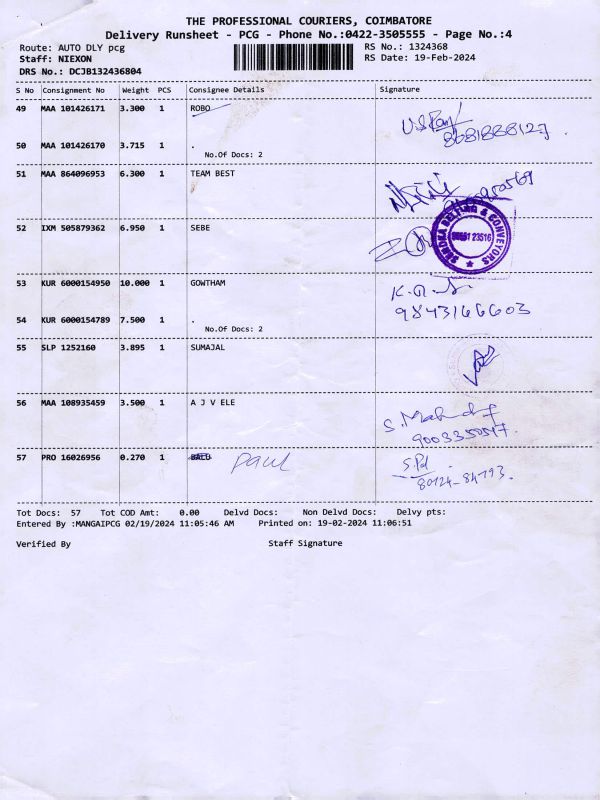 THE PROFESSIONAL COURIERS, COIMBATORE
Delivery Runsheet - PCG - Phone No.:0422-3505555 - Page No.:4
Route: AUTO DLY pcg
RS No.: 1324368
Staff: NIEXON
RS Date: 19-Feb-2024
DRS No.: DCJB132436804
S No Consignment No Weight PCS Consignee Details Signature
49 MAA 101426171 3.300 1 ROBO
50 MAA 101426170 3.715 1 .
No.Of Docs: 2
51 MAA 864096953 6.300 1 TEAM BEST
52 IXM 505879362 6.950 1 SEBE
53 KUR 6000154950 10.000 1 GOWTHAM
9843166603
54 KUR 6000154789 7.500 1 .
No.Of Docs: 2
55 SLP 1252160 3.895 1 SUMAJAL
56 MAA 108935459 3.500 1 A J V ELE
57 PRO 16026956 0.270 1 BALU Paul
80124-84793.
Tot Docs: 57 Tot COD Amt: 0.00 Delvd Docs: Non Delvd Docs: Delvy pts:
Entered By :MANGAIPCG 02/19/2024 11:05:46 AM Printed on: 19-02-2024 11:06:51
Verified By Staff Signature